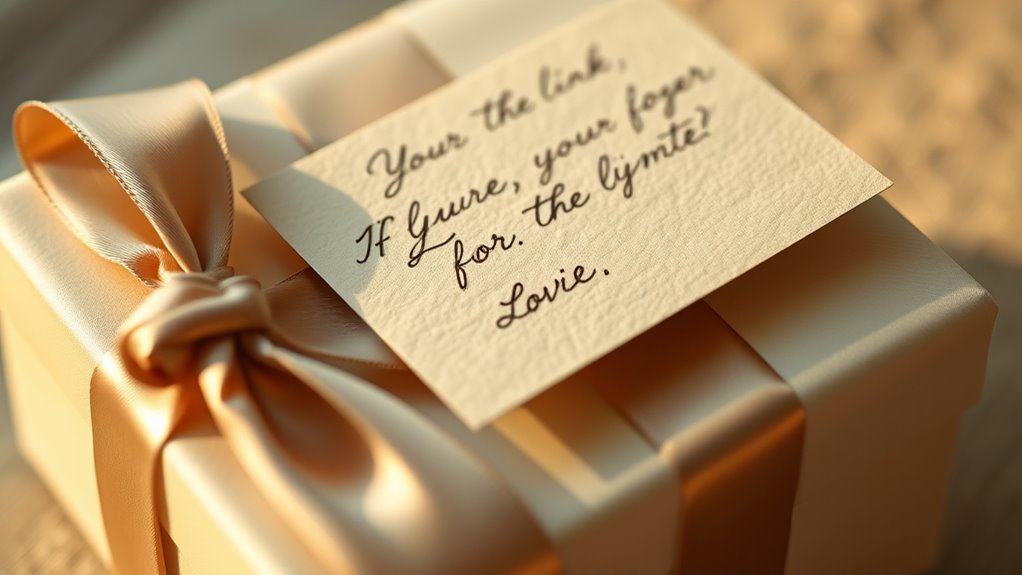 Your the link,
If Yuure, your foger
for. the lymte?
Lovie.